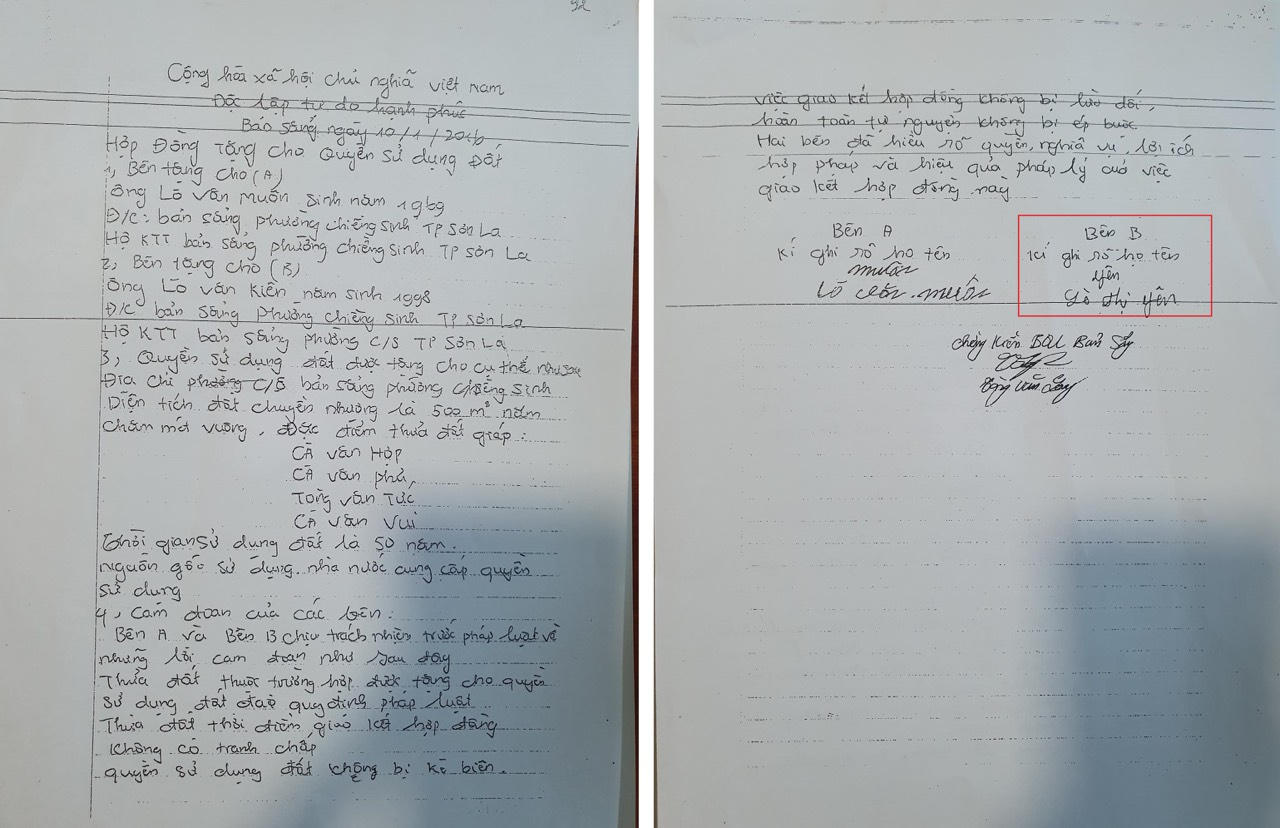 92
Cộng hòa xã hội chủ nghiã việt nam
Độc lập tự do hạnh phúc
Bản sẳng ngày 10/1/2016
Hợp Đồng Tặng cho Quyền sử dụng Đất
1, Bên tặng cho (A)
ông Lò văn Muôn sinh năm 1969
Đ/C: bản sẳng phường chiềng sinh TP Sơn La
Hộ KTT bản sẳng phường chiềng sinh TP sơn La
2, Bên tặng cho (B)
ông Lò văn Kiên năm sinh 1998
Đ/C bản sẳng phường chiềng sinh TP sơn La
Hộ KTT bản sẳng phường C/S TP sơn La
3, Quyền sử dụng đất được tặng cho cụ thể như sau
Địa chỉ phường C/S bản sẳng phường chiềng sinh
Diện tích đất chuyển nhượng là 500 m² năm
chăm mét vuông, Đặc điểm thửa đất giáp:
CÀ văn Hợp
CÀ văn phủ,
Tòng văn Tực
CÀ văn vui
Thời gian sử dụng đất là 50 năm.
nguồn gốc sử dụng nhà nước cung cấp quyền
sử dụng
4, Cam đoan của các bên:
Bên A và Bên B chịu trách nhiệm trước pháp luật về
những lời cam đoan như sau đây
Thửa đất thuộc trường hợp được tặng cho quyền
sử dụng đất quy định pháp luật
Thửa đất thời điểm giao kết hợp đồng
không có tranh chấp
quyền sử dụng đất không bị kê biên.
việc giao kết hợp đồng không bị lừa dối,
hoàn toàn tự nguyện không bị ép buộc
Hai bên đã hiểu rõ quyền, nghĩa vụ, lợi ích
hợp pháp và hiệu quả pháp lý của việc
giao kết hợp đồng này
Bên A
kí ghi rõ họ tên
muôn
Lò văn muôn
Bên B
kí ghi rõ họ tên
yên
Lò thị yên
chứng kiến BQL Bản
Tòng văn